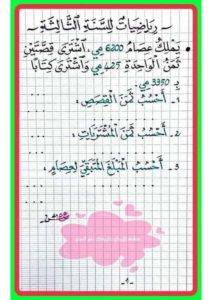 ~ رِيَاضِيَاتٌ لِلسَّنَةِ الثَّالِثَةِ ~
• يَمْلِكُ عِصَامٌ 6200 مي، اشْتَرَى قِصَّتَيْنِ
ثَمَنُ الْوَاحِدَةِ 425 مي وَاشْتَرَى كِتَابًا
بِـ 3350 مي.
1 ـ أَحْسُبُ ثَمَنَ الْقِصَصِ:
2 ـ أَحْسُبُ ثَمَنَ الْمُشْتَرَيَاتِ:
3 ـ أَحْسُبُ الْمَبْلَغَ الْمُتَبَقِّيَ لِعِصَامٍ:
ـ 1 ـ